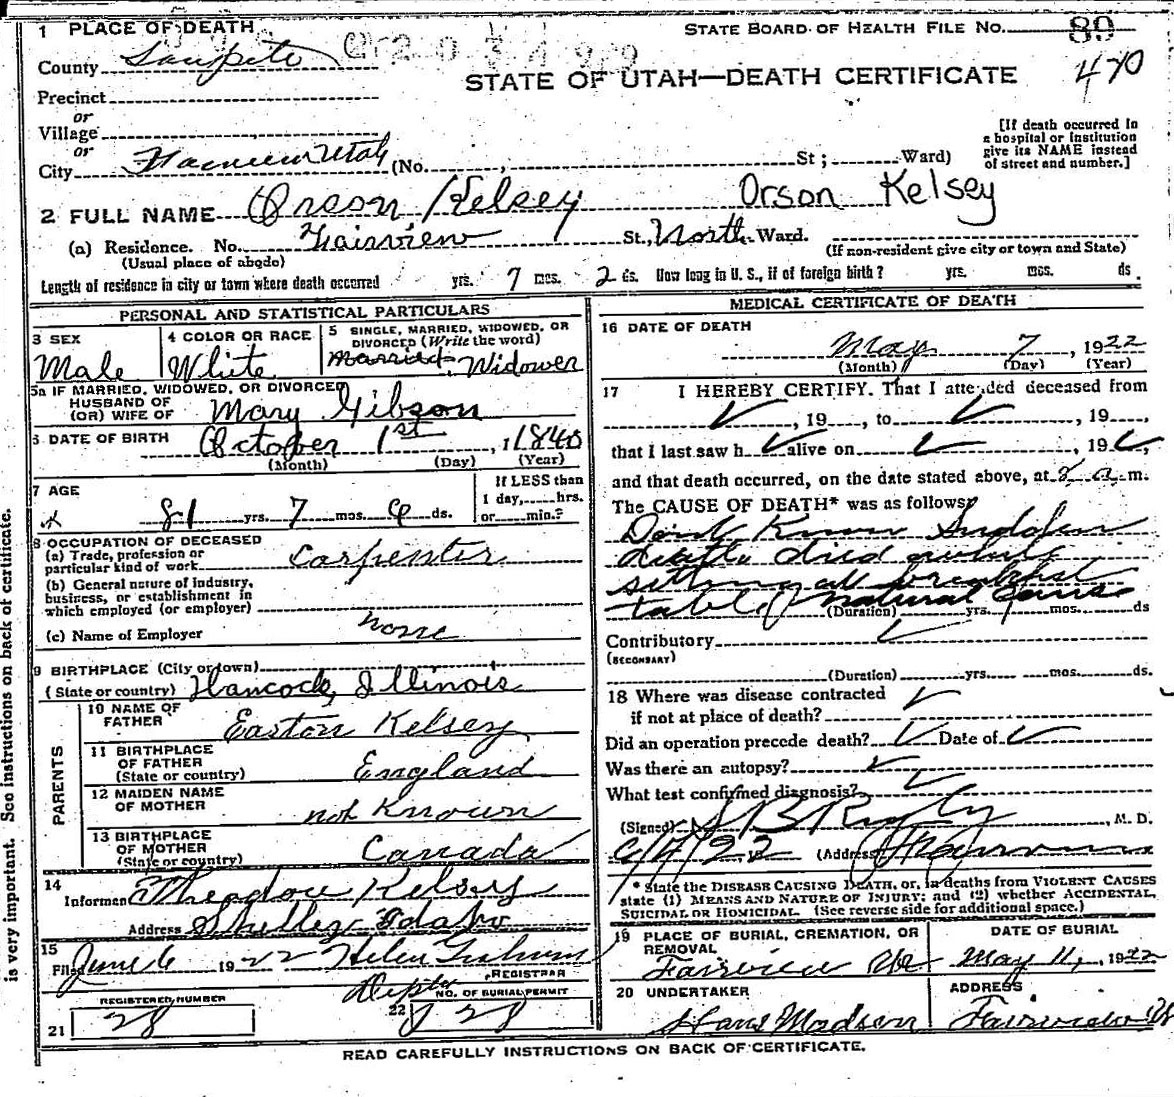 1 PLACE OF DEATH
STATE BOARD OF HEALTH FILE NO. 89
County Sanpete
470
STATE OF UTAH—DEATH CERTIFICATE
Precinct
or
Village
or
City Fairview Utah (No. St; Ward)
[If death occurred in
a hospital or institution
give its NAME instead
of street and number.]
Orson Kelsey
2 FULL NAME Orson Kelsey
(a) Residence. No. Fairview St., North Ward.
(Usual place of abode)
(If non-resident give city or town and State)
Length of residence in city or town where death occurred yrs. 7 mos. 2 ds. How long in U. S., if of foreign birth? yrs. mos. ds.
PERSONAL AND STATISTICAL PARTICULARS
3 SEX
Male
4 COLOR OR RACE
White
5 SINGLE, MARRIED, WIDOWED, OR
DIVORCED (Write the word)
Married. Widower
5a IF MARRIED, WIDOWED, OR DIVORCED
HUSBAND OF
(OR) WIFE OF Mary Gibson
6 DATE OF BIRTH October 1st, 1840
(Month) (Day) (Year)
7 AGE
81 yrs. 7 mos. 6 ds.
If LESS than
1 day, hrs.
or min.?
8 OCCUPATION OF DECEASED
(a) Trade, profession or
particular kind of work Carpenter
(b) General nature of industry,
business, or establishment in
which employed (or employer)
(c) Name of Employer none
9 BIRTHPLACE (City or town)
(State or country) Hancock, Illinois
PARENTS
10 NAME OF
FATHER Easton Kelsey
11 BIRTHPLACE
OF FATHER
(State or country) England
12 MAIDEN NAME
OF MOTHER not Known
13 BIRTHPLACE
OF MOTHER
(State or country) Canada
14
Informant Theodore Kelsey
Address Shelley Idaho
15
Filed June 6 1922 Helen Graham
Depty REGISTRAR
REGISTERED NUMBER
21 28
NO. OF BURIAL PERMIT
22 28
MEDICAL CERTIFICATE OF DEATH
16 DATE OF DEATH
May 7, 1922
(Month) (Day) (Year)
17 I HEREBY CERTIFY. That I attended deceased from
, 19 , to , 19 ,
that I last saw h alive on , 19 ,
and that death occurred, on the date stated above, at 8 a. m.
The CAUSE OF DEATH* was as follows:
Dont Know
died while
sitting at breakfast
table natural cause
(Duration) yrs. mos. ds
Contributory
(SECONDARY)
(Duration) yrs. mos. ds.
18 Where was disease contracted
if not at place of death?
Did an operation precede death? Date of
Was there an autopsy?
What test confirmed diagnosis?
(Signed) , M. D.
22 (Address)
* State the DISEASE CAUSING DEATH, or, in deaths from VIOLENT CAUSES
state (1) MEANS AND NATURE OF INJURY; and (2) whether ACCIDENTAL,
SUICIDAL OR HOMICIDAL. (See reverse side for additional space.)
19 PLACE OF BURIAL, CREMATION, OR
REMOVAL
Fairview
DATE OF BURIAL
May 11, 1922
20 UNDERTAKER
Hans Madsen
ADDRESS
Fairview
READ CAREFULLY INSTRUCTIONS ON BACK OF CERTIFICATE.
is very important. See instructions on back of certificate.